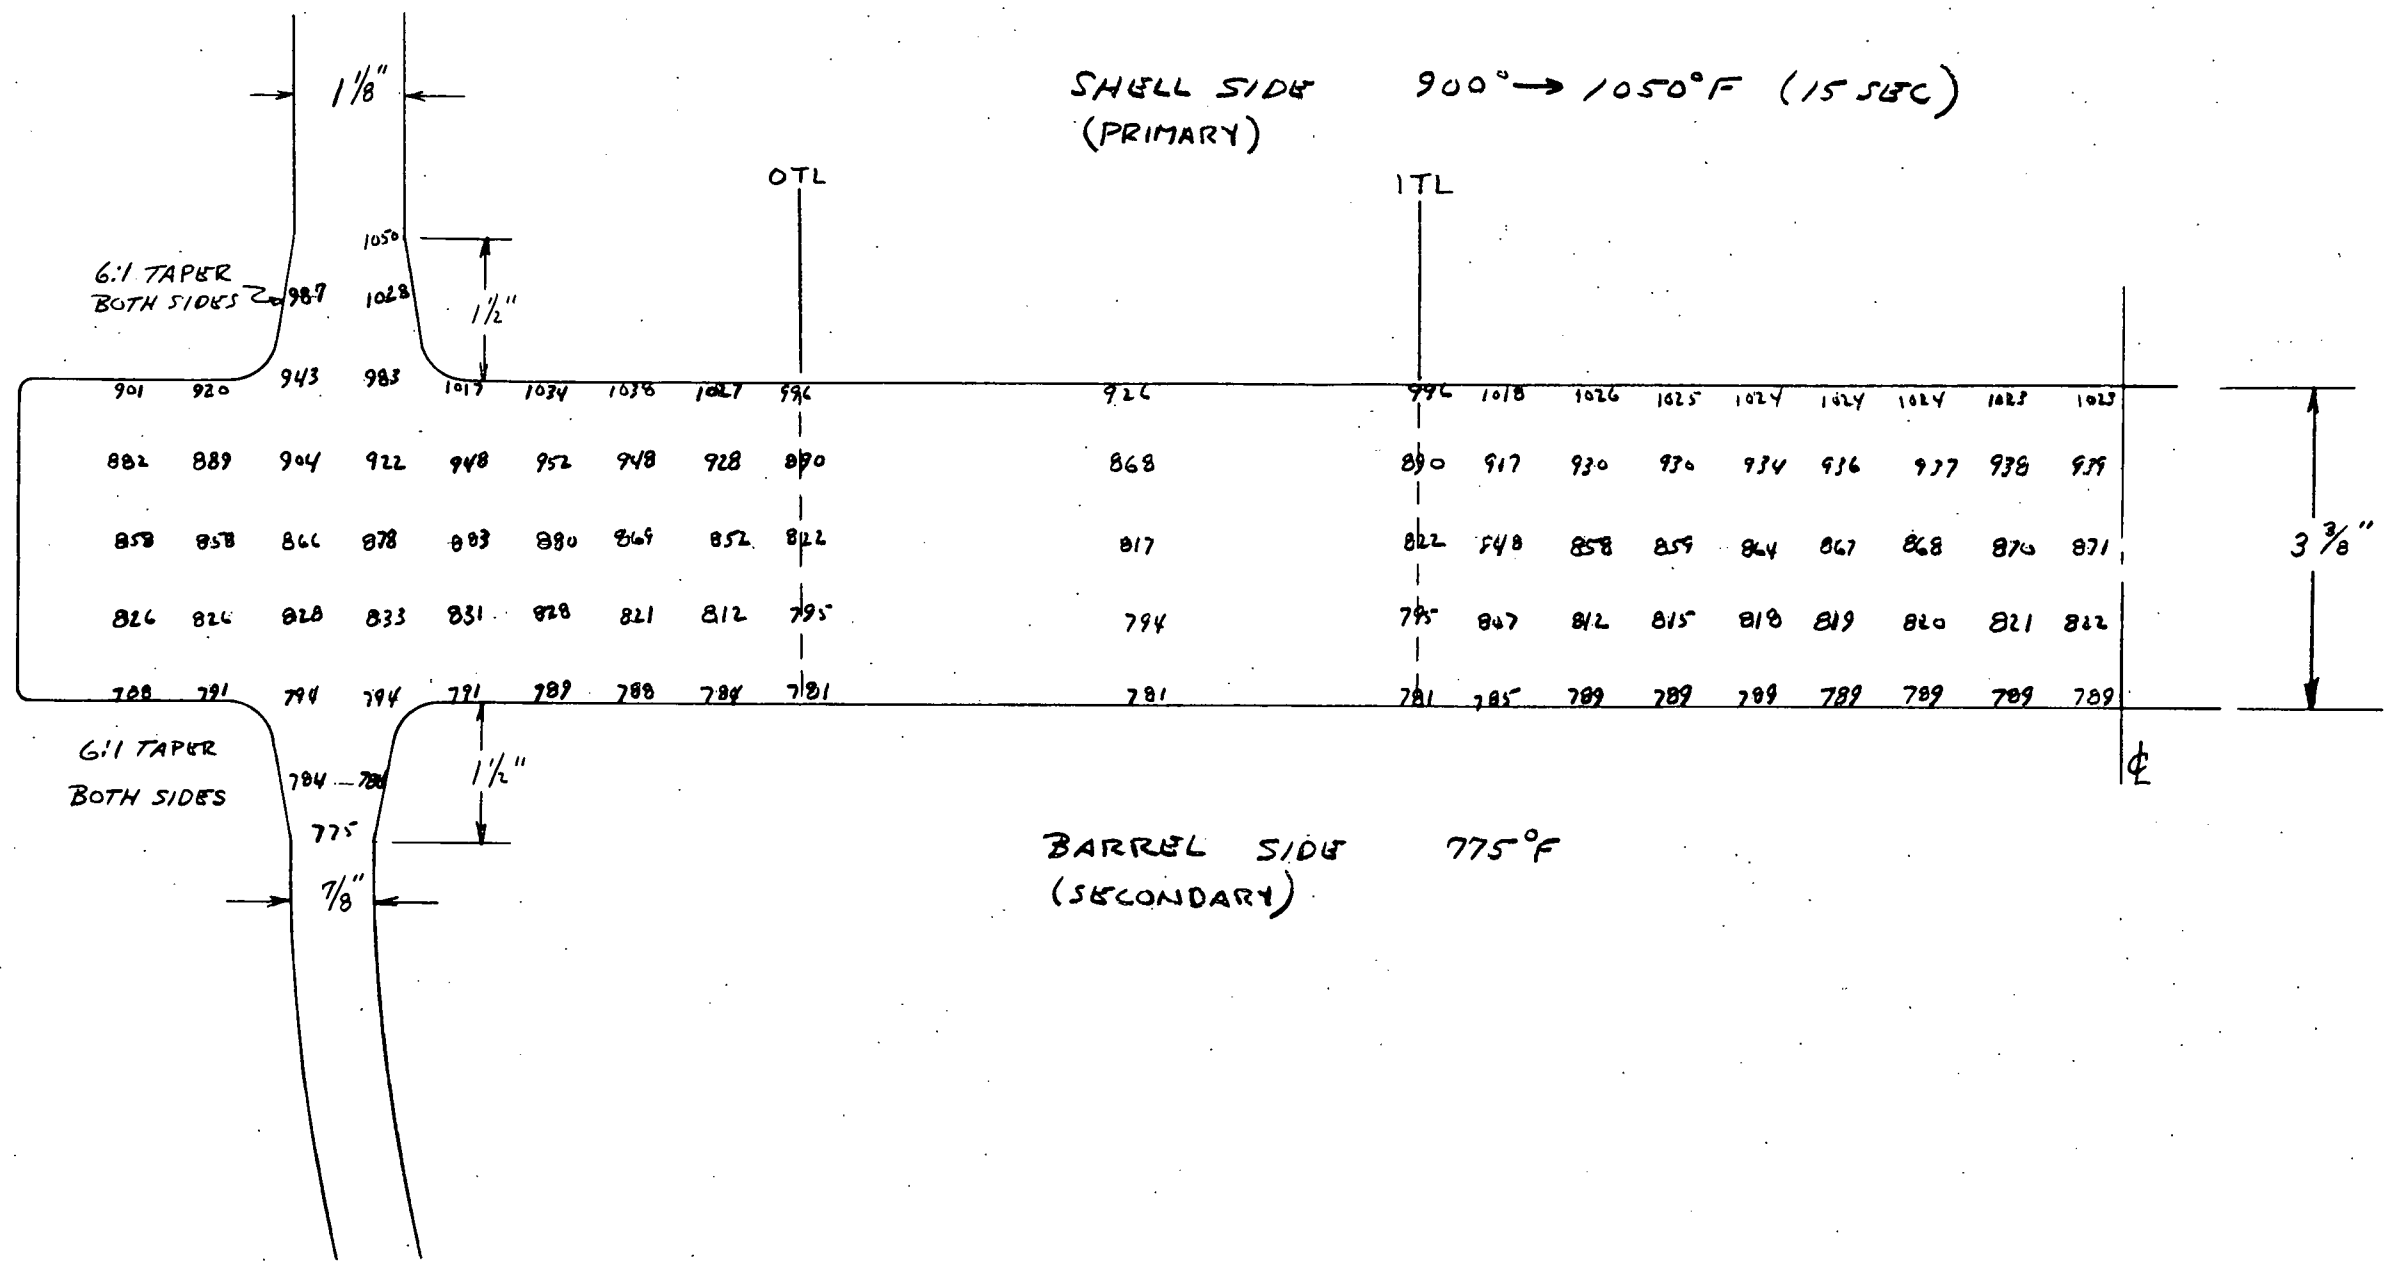 1 1/8"
SHELL SIDE 900° → 1050°F (15 SEC)
(PRIMARY)
OTL ITL
1050
6:1 TAPER
BOTH SIDES
987 1028
1 1/2"
943 983
901 920 1017 1034 1038 1027 996 926 996 1018 1026 1025 1024 1024 1024 1023 1023
882 889 904 922 948 952 948 928 890 868 890 917 930 930 934 936 937 938 939
858 858 866 878 883 880 869 852 822 817 822 848 858 859 864 867 868 870 871
3 3/8"
826 826 828 833 831 828 821 812 795 794 795 807 812 815 818 819 820 821 822
788 791 794 794 791 789 788 784 781 781 781 785 789 789 789 789 789 789 789
6:1 TAPER
BOTH SIDES
784
1 1/2"
℄
775
BARREL SIDE 775°F
(SECONDARY)
7/8"